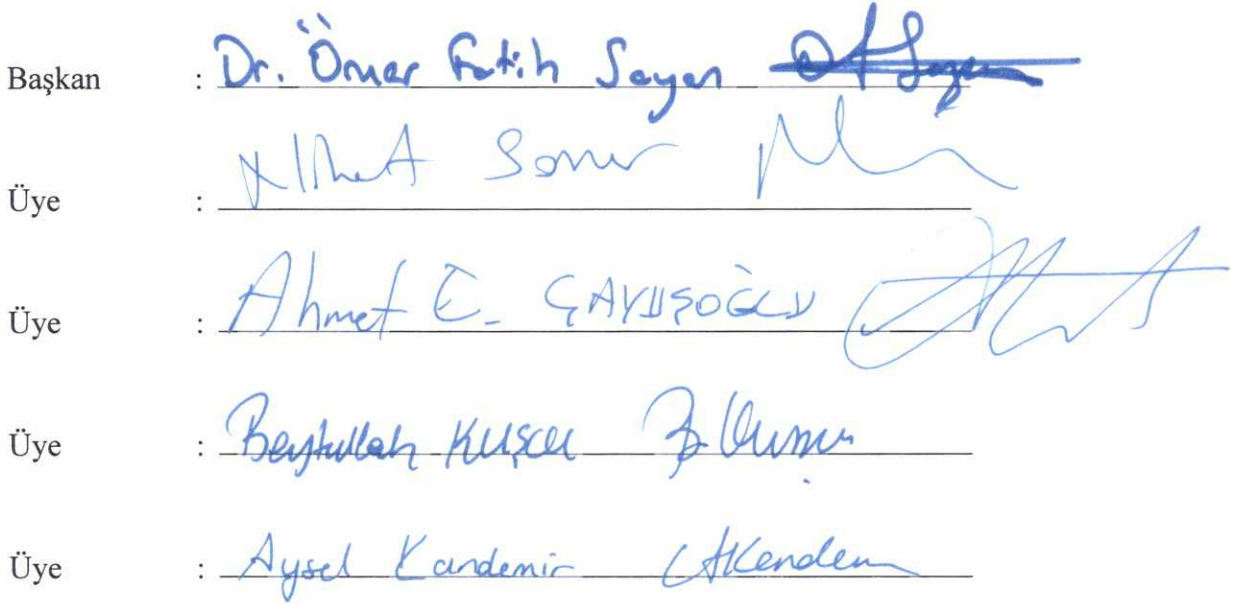 Başkan : Dr. Ömer Fatih Sayan
Üye : Nihat Somer
Üye : Ahmet E. ÇAVUŞOĞLU
Üye : Beytullah KUŞCU
Üye : Aysel Kandemir